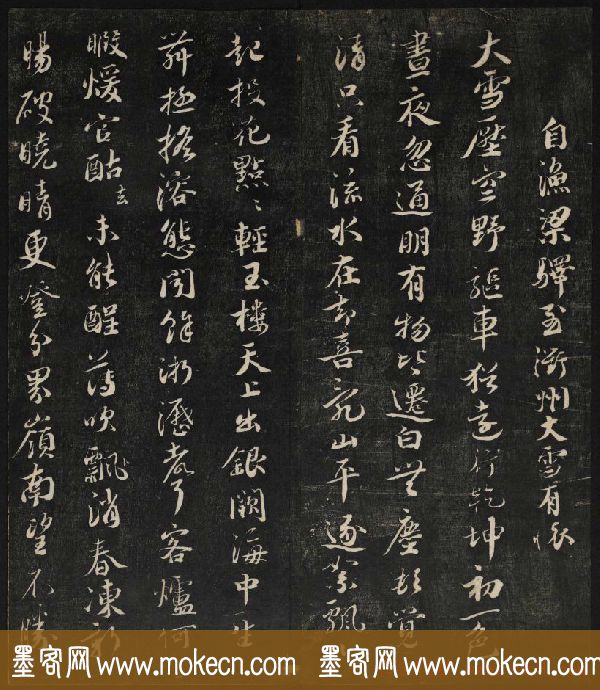 自漁梁驛至衢州大雪有懷
大雪壓空野驅車猶遠行乾坤初一色
晝夜忽通明有物皆遷白無塵頓覺
清只看流水在却喜亂山平逐絮飄
起投花點〻輕玉樓天上出銀闕海中生
舞極搖溶態聞餘淅瀝聲客爐何
暇煖官酤去未能醒薄吹飄消春凍新
暘破曉晴更登分界嶺南望不勝
墨客网 www.mokecn.com 墨客网 www.mokecn.com